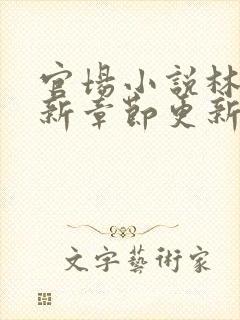 官場小說林
新章節更新
文字藝術家